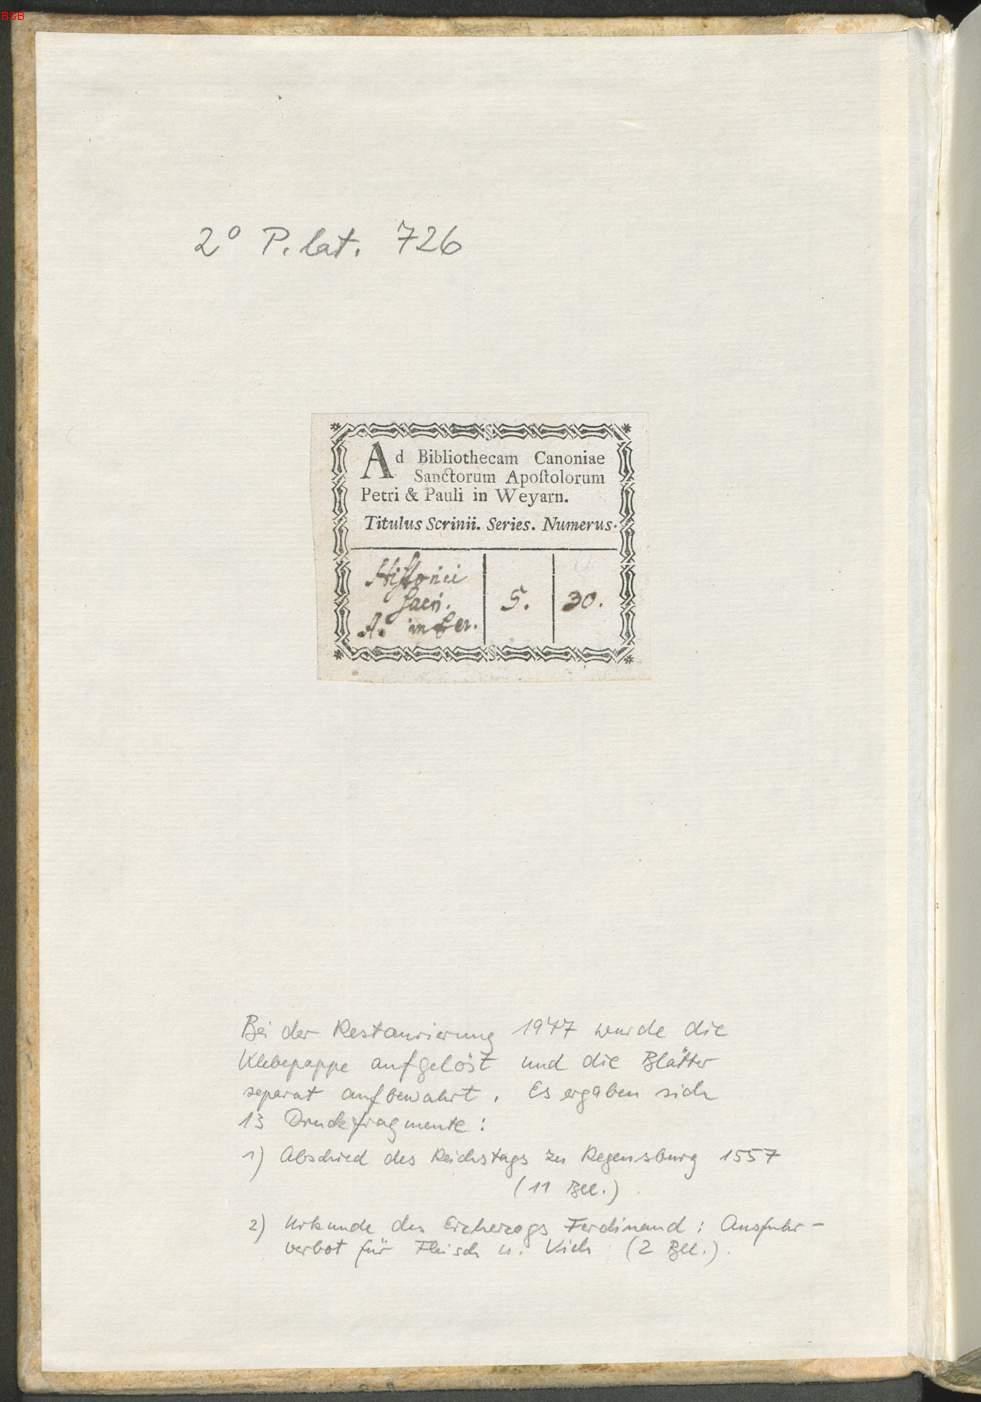 BSB
2° P. lat. 726
Ad Bibliothecam Canoniae
Sanctorum Apoſtolorum
Petri & Pauli in Weyarn.
Titulus Scrinii. Series. Numerus.
Hiſtorici
5. 30.
A.
Bei der Restaurierung 1977 wurde die
Klebepappe aufgelöst und die Blätter
separat aufbewahrt. Es ergaben sich
13 Druckfragmente:
1) Abschied des Reichstags zu Regensburg 1557
(11 Bll.)
2) Urkunde des Erzherzogs Ferdinand: Ausfuhr-
verbot für Fleisch u. Vieh (2 Bll.).